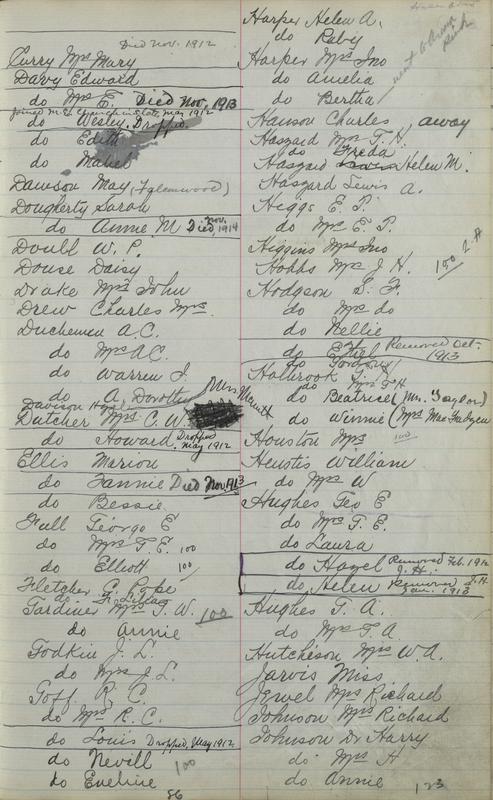 Died Nov. 1912
Curry Mrs Mary
Davy Edward
do Mrs E. Died Nov. 1913
do Wesley. Dropped
do Edith
do Mabel
Dawson May (Inglewood)
Dougherty Sarah
do Annie M Died Nov. 1914
Doull W. P.
Douse Daisy
Drake Mrs John
Drew Charles Mrs.
Duchemen A.C.
do Mrs A.C.
do Warren J.
do A. Dorothea
Davison Hazel
Dutcher Mrs C. W.
do Howard Dropped May 1912
Ellis Marion
do Fannie Died Nov. 1913
do Bessie
Full George E
do Mrs G. E. 100
do Elliott 100
Fletcher C. Pope
Gardiner Mrs T. W. 100
do Annie
Godkin J. L.
do Mrs J. L.
Goff R. C.
do Mrs R. C.
do Louis Dropped May 1912
do Nevill
do Eveline 100
86
Harper Helen A.
do Ruby
Harper Mrs Jno
do Amelia
do Bertha
Hanson Charles away
Haszard Mrs F. H.
do Freda
Haszard Helen M.
Haszard Lewis A.
Higgs E. P.
do Mrs E. P.
Higgins Mrs Jno
Hobbs Mrs J. H. 100
Hodgson S. F.
do Mrs do
do Nellie
do Ethel Removed Oct. 1913
do Gordon
Holbrook T.
do Mrs T H
do Beatrice (Mrs. Taylor)
do Winnie (Mrs MacFadyen
Houston Mrs 100
Heustis William
do Mrs W
Hughes Geo E
do Mrs G. E.
do Laura
do Hazel Removed Feb. 1912
do Helen Removed Jan. 1913
Hughes T. A.
do Mrs T. A.
Hutcheson Mrs W. A.
Jarvis Miss
Jewel Mrs Richard
Johnson Mrs Richard
Johnson Dr Harry
do Mrs H
do Annie
123